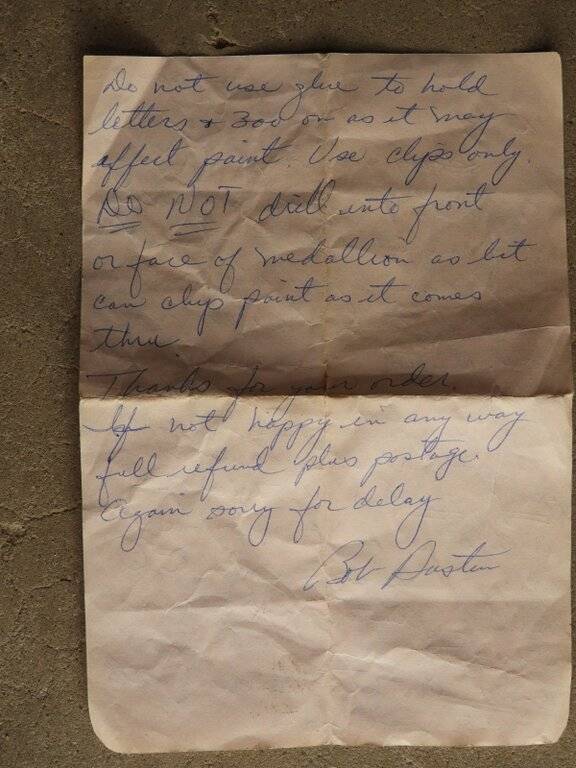 Do not use glue to hold
letters & 300 on as it may
affect paint. Use clips only.
DO NOT drill into front
or face of medallion as bit
can chip paint as it comes
thru.
Thanks for your order.
If not happy in any way
full refund plus postage.
Again sorry for delay
Bob